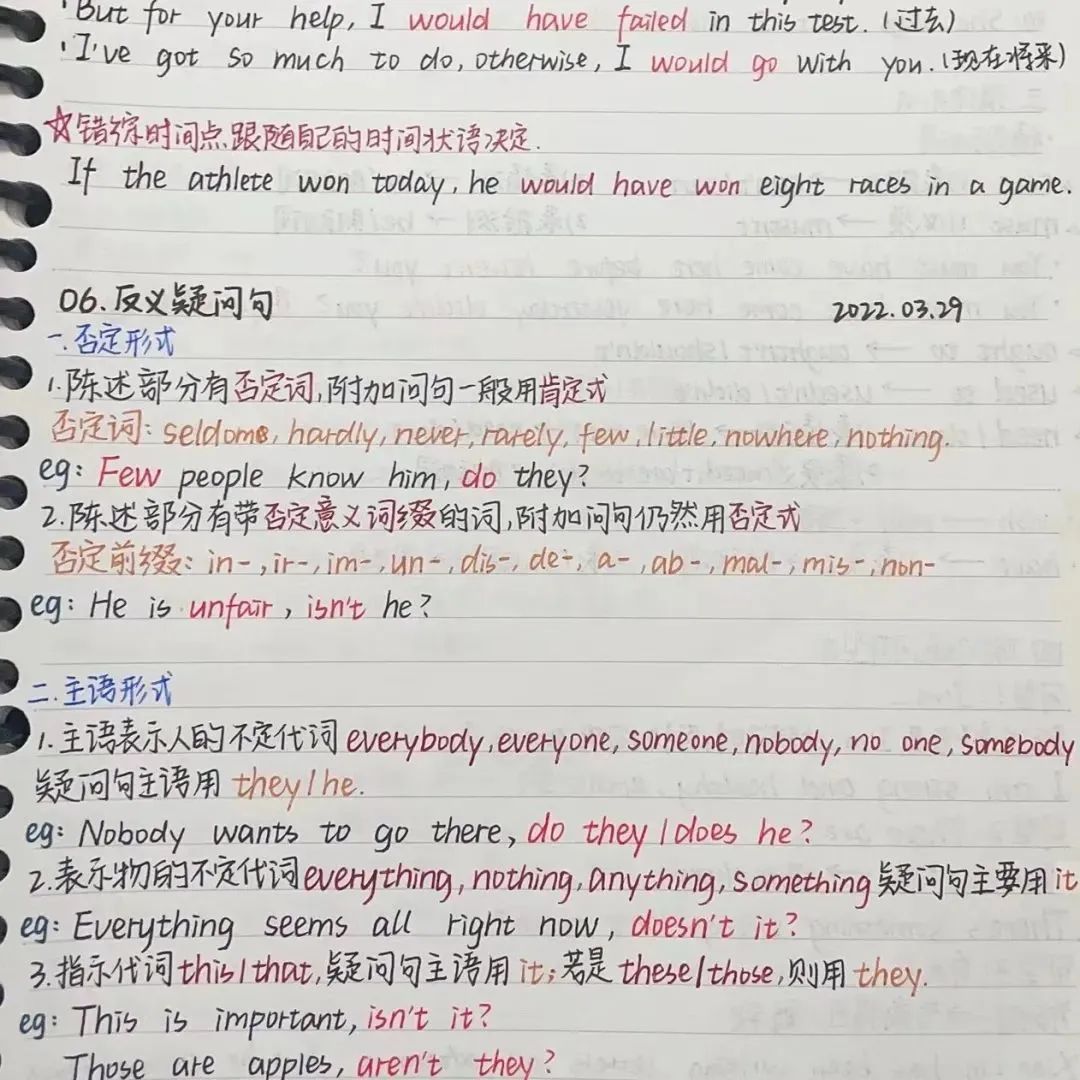 ·But for your help, I would have failed in this test. (过去)
·I've got so much to do, otherwise, I would go with you. (现在将来)
☆错综时间点跟随自己的时间状语决定.
If the athlete won today, he would have won eight races in a game.
06.反义疑问句 2022.03.29
一.否定形式
1.陈述部分有否定词,附加问句一般用肯定式
否定词: seldom, hardly, never, rarely, few, little, nowhere, nothing.
eg: Few people know him, do they?
2.陈述部分有带否定意义词缀的词,附加问句仍然用否定式
否定前缀: in-, ir-, im-, un-, dis-, de-, a-, ab-, mal-, mis-, non-
eg: He is unfair, isn't he?
二.主语形式
1.主语表示人的不定代词everybody, everyone, someone, nobody, no one, somebody
疑问句主语用 they/he.
eg: Nobody wants to go there, do they/does he?
2.表示物的不定代词everything, nothing, anything, something 疑问句主要用it
eg: Everything seems all right now, doesn't it?
3.指示代词this/that,疑问句主语用it;若是these/those,则用they.
eg: This is important, isn't it?
Those are apples, aren't they?